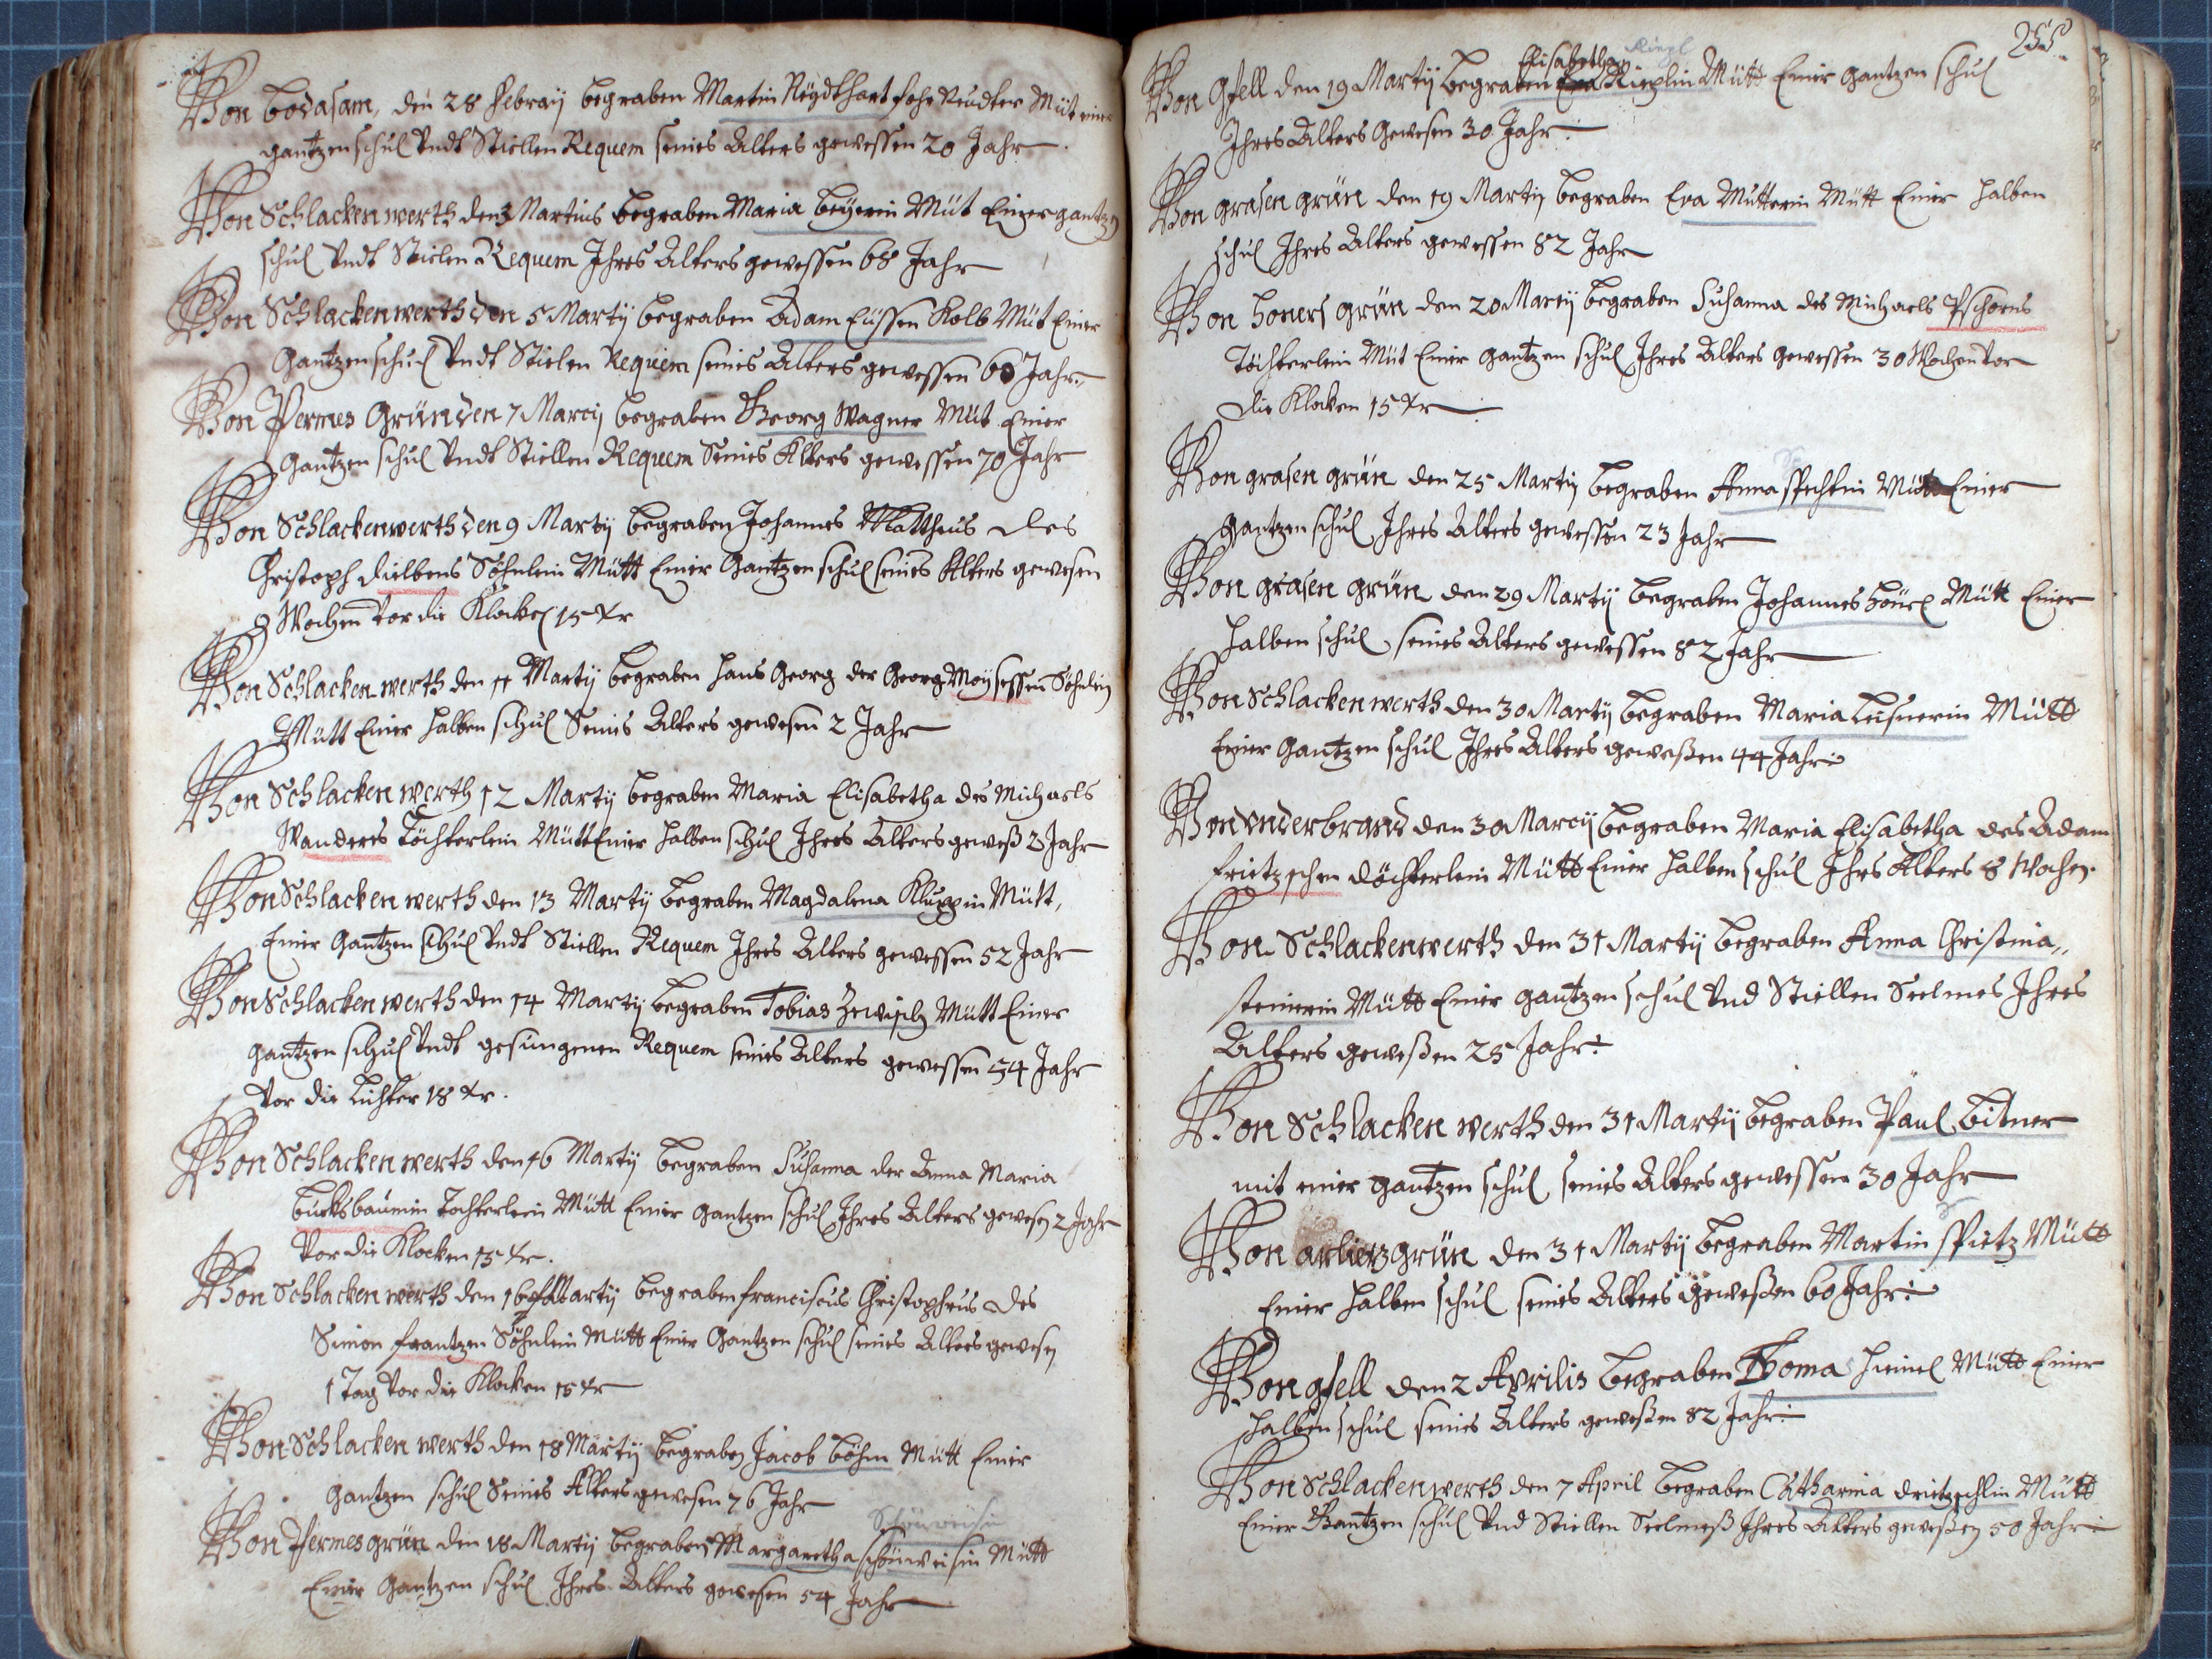 Von bodasam, den 28 Febraÿ begraben Martin Neÿdthart Müt einer
gantzen schul Vndt Stiellen Requem seines Alters gewessen 20 Jahr
Von Schlackenwerth den 3 Martius begraben Maria Beÿerin Müt Einer gantzen
schul Vndt Stielen Requem Ihres Alters gewessen 68 Jahr
Von Schlackenwerth den 5 Martÿ begraben Adam Eüssen Kolb Müt Einer
Gantzen schul Vndt Stielen Requiem seines Alters gewessen 60 Jahr
Von Permes Grün den 7 Marcÿ begraben Georg Wagner Müt Einer
Gantzen schul Vndt Stiellen Requem Seines Alters gewessen 70 Jahr
Von Schlackenwerth den 9 Martÿ begraben Johannes Mattheus des
Christoph dielbens Söhnlein Mütt Einer Gantzen schul seines Alters gewesen
9 Wochen Vor die Klocken 15 Xr
Von Schlackenwerth den 11 Martÿ begraben Hans Georg der Georg Moÿsessen Söhnlein
Mütt Einer halben schul Seines Alters gewesen 2 Jahr
Von Schlackenwerth 12 Martÿ begraben Maria Elisabetha des Michaels
Wanderes Töchterlein Mütt Einer halben schul Ihres Alters geweß 3 Jahr
Von Schlackenwerth den 13 Martÿ begraben Magdalena Kluppin Mütt,
Einer Gantzen schul Vndt Stiellen Requem Ihres Alters gewessen 52 Jahr
Von Schlackenwerth den 14 Martÿ begraben Tobias Zewisch Mütt Einer
gantzen schul Vndt gesungenen Requem seines Alters gewessen 54 Jahr
Vor die Lichter 18 Xr.
Von Schlackenwerth den 16 Martÿ begraben Susanna der Anna Maria
bucksbaümin Tochterlein Mütt Einer Gantzen schul Ihres Alters gewesen 2 Jahr
Vor die Klocken 15 Xr.
Von Schlackenwerth den 16 Martÿ begraben franciscus Christophrus des
Simon frantzen Söhnlein Mütt Einer Gantzen schul seines Alters gewesen
1 Tag Vor die Klocken 15 Xr
Von Schlackenwerth den 18 Martÿ begraben Jacob Böhm Mütt Einer
Gantzen schul Seines Alters gewesen 76 Jahr
Schönweisin
Von Permesgrün den 18 Martÿ begraben Margaretha schönweisin Mütt
Einer Gantzen schul Ihres Alters gewesen 54 Jahr
255
Elisabetha Riepl
Von Gsell den 19 Martÿ begraben Eva Rieplin Mütt Einer Gantzen schul
Ihres Alters Gewesen 30 Jahr
Von grasen grün den 19 Martÿ begraben Eva Mutterin Mütt Einer halben
schul Ihres Alters gewessen 82 Jahr
Von honers grün den 20 Martÿ begraben Susanna des Michaels Pschorns
Töchterlein Müt Einer Gantzen schul Ihres Alters Gewessen 30 Wochen Vor
die Klocken 15 Xr
Von grasen grün den 25 Martÿ begraben Anna spechtin Mütt Einer
Gantzen schul Ihres Alters gewessen 23 Jahr
Von grasen grün den 29 Martÿ begraben Johannes Mütt Einer
halben schul seines Alters gewessen 82 Jahr
Von Schlackenwerth den 30 Martÿ begraben Maria Leisnerin Mütt
Einer Gantzen schul Ihres Alters geweßen 44 Jahr
Von Vnderbrand den 30 Marcÿ begraben Maria Elisabetha des Adam
frietzschen döchterlein Mütt Einer halben schul Ihrs Alters 8 Wochen
Von Schlackenwerth den 31 Martÿ begraben Anna Christina,,
steinerin Mütt Einer gantzen schul Vnd Stiellen Seelmes Ihres
Alters geweßen 25 Jahr
Von Schlackenwerth den 31 Martÿ begraben Paul Bitner
mit einer gantzen schul seines Alters gewessen 30 Jahr
Von arlierzgrün den 31 Martÿ begraben Martin spietz Mütt
Einer halben schul seines Alters geweßen 60 Jahr
Von gsell den 2 Aprilis begraben Thoma heinel Mütt Einer
halben schul seines Alters geweßen 82 Jahr
Von Schlackenwerth den 7 April begraben Catharina drietzschlin Mütt
Einer Gantzen schul Vnd Stiellen Seelmeß Ihres Alters geweßen 50 Jahr